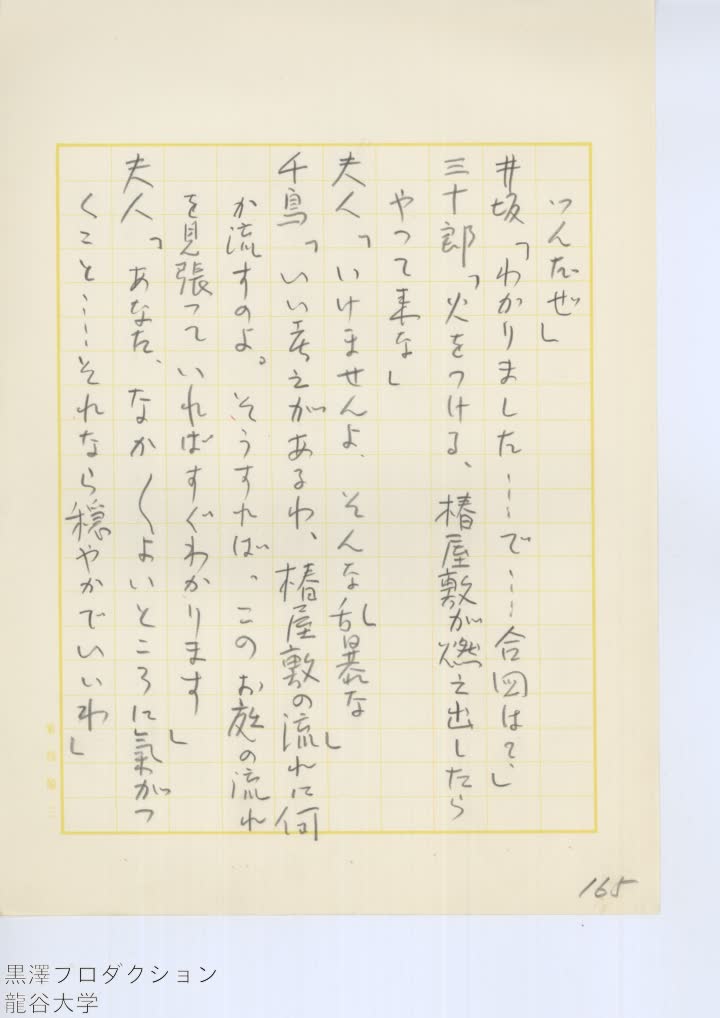 つんだぜ」
井坂「わかりました……で……合図は?」
三十郎「火をつける、椿屋敷が燃え出したら
やつて来な」
夫人「いけませんよ、そんな乱暴な」
千鳥「いい考えがあるわ、椿屋敷の流れに何
か流すのよ。そうすれば、このお庭の流れ
を見張つていればすぐわかります」
夫人「あなた、なか〳〵よいところに氣がつ
くこと……それなら穏やかでいいわ」
165
黒澤プロダクション
龍谷大学